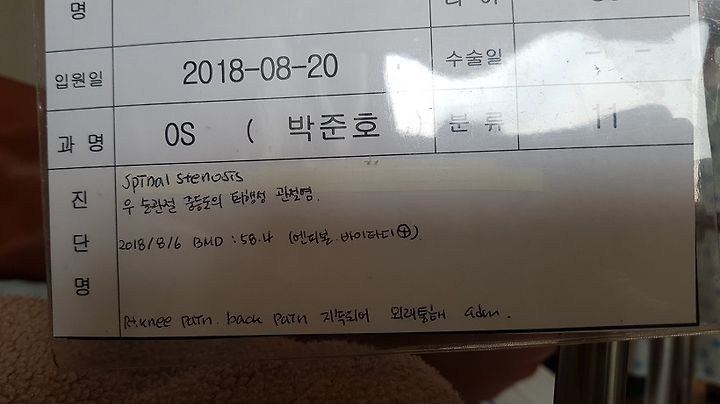 명
입원일 2018-08-20 수술일
과 명 OS ( 박준호 ) 분 류 11
진단명
Spinal stenosis
우 슬관절 중등도의 퇴행성 관절염.
2018/8/6 BMD : 58.4 (엔티볼. 바이타디⊕).
Rt. knee pain. back pain 지속되어 외래통해 adm.